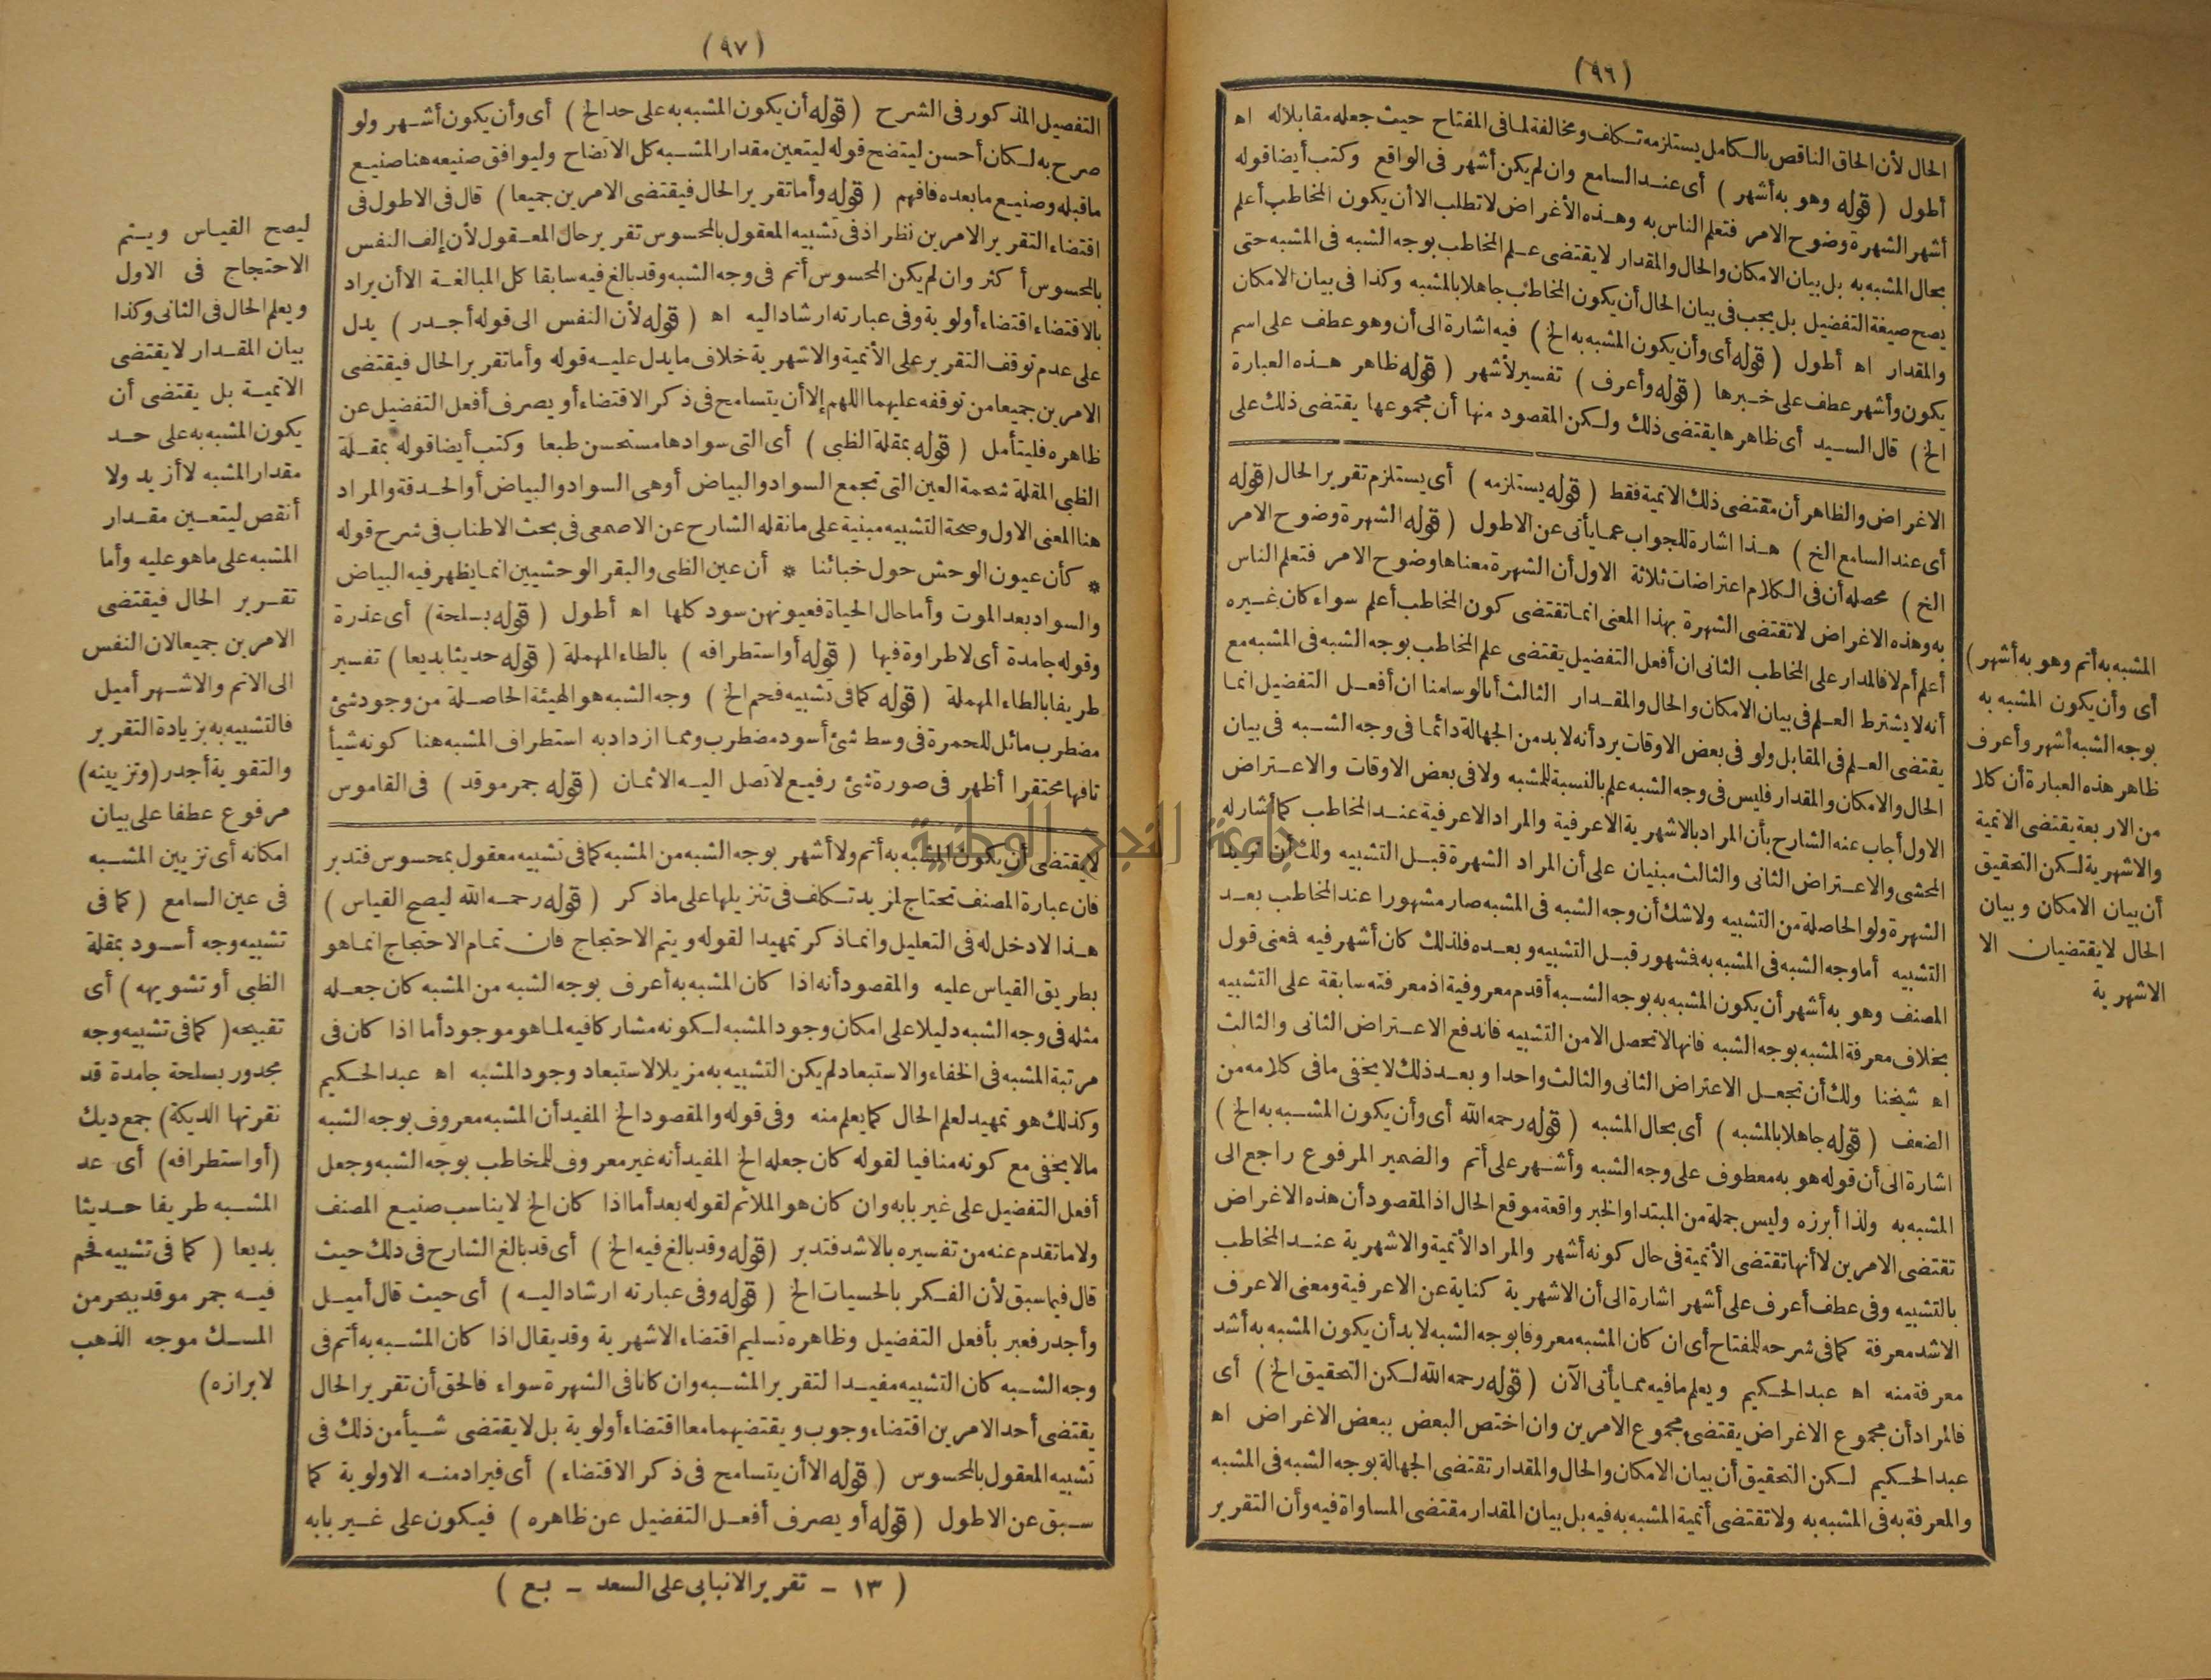 (٩٦)
الحال لأن الحاق الناقص بالكامل يستلزمه تكلف ومخالفة لما في المفتاح حيث جعله مقابلا له اه
أطول (قوله وهو به أشهر) أى عند السامع وان لم يكن أشهر فى الواقع وكتب أيضا قوله
أشهر الشهرة وضوح الامر فتعلم الناس به وهذه الأغراض لا تطلب الا أن يكون المخاطب أعلم
بحال المشبه به بل بيان الامكان والحال والمقدار لا يقتضى علم المخاطب بوجه الشبه فى المشبه حتى
يصح صيغة التفضيل بل يجب فى بيان الحال أن يكون المخاطب جاهلا بالمشبه وكذا فى بيان الامكان
والمقدار اه أطول (قوله أى وأن يكون المشبه به الخ) فيه اشارة الى أن وهو عطف على اسم
يكون وأشهر عطف على خبرها (قوله وأعرف) تفسير لأشهر (قوله ظاهر هذه العبارة
الخ) قال السيد أى ظاهرها يقتضى ذلك ولكن المقصود منها أن مجموعها يقتضى ذلك على
الاغراض والظاهر أن مقتضى ذلك الاتمية فقط (قوله يستلزمه) أى يستلزم تقرير الحال (قوله
أى عند السامع الخ) هذا اشارة للجواب عما يأتى عن الاطول (قوله الشهرة وضوح الامر
الخ) محصله أن فى الكلام اعتراضات ثلاثة الاول أن الشهرة معناها وضوح الامر فتعلم الناس
به وهذه الاغراض لا تقتضى الشهرة بهذا المعنى انما تقتضى كون المخاطب أعلم سواء كان غيره
أعلم أم لا فالمدار على المخاطب الثانى ان أفعل التفضيل يقتضى علم المخاطب بوجه الشبه فى المشبه مع
أنه لا يشترط العلم فى بيان الامكان والحال والمقدار الثالث أنا لو سلمنا ان أفعل التفضيل انما
يقتضى العلم فى المقابل ولو فى بعض الاوقات يرد أنه لا بد من الجهالة دائما فى وجه الشبه فى بيان
الحال والامكان والمقدار فليس فى وجه الشبه علم بالنسبة للمشبه ولا فى بعض الاوقات والاعتراض
الاول أجاب عنه الشارح بأن المراد بالاشهرية الاعرفية والمراد الاعرفية عند المخاطب كما أشار له
المحشى والاعتراض الثانى والثالث مبنيان على أن المراد الشهرة قبل التشبيه ولك أن تريد
الشهرة ولو الحاصلة من التشبيه ولا شك أن وجه الشبه فى المشبه صار مشهورا عند المخاطب بعد
التشبيه أما وجه الشبه فى المشبه به فشهور قبل التشبيه وبعده فلذلك كان أشهر فيه فمعنى قول
المصنف وهو به أشهر أن يكون المشبه به بوجه الشبه أقدم معروفية اذ معرفته سابقة على التشبيه
بخلاف معرفة المشبه بوجه الشبه فانها لا تحصل الا من التشبيه فاندفع الاعتراض الثانى والثالث
اه شيخنا ولك أن تجعل الاعتراض الثانى والثالث واحدا وبعد ذلك لا يخفى ما فى كلامه من
الضعف (قوله جاهلا بالمشبه) أى بحال المشبه (قوله رحمه الله أى وأن يكون المشبه به الخ)
اشارة الى أن قوله هو به معطوف على وجه الشبه وأشهر على أتم والضمير المرفوع راجع الى
المشبه به ولذا أبرزه وليس جملة من المبتدا والخبر واقعة موقع الحال اذ المقصود أن هذه الاغراض
تقتضى الامرين لا أنها تقتضى الأتمية فى حال كونه أشهر والمراد الأتمية والاشهرية عند المخاطب
بالتشبيه وفى عطف أعرف على أشهر اشارة الى أن الاشهرية كناية عن الاعرفية ومعنى الاعرف
الاشد معرفة كما فى شرحه للمفتاح أى ان كان المشبه معروفا بوجه الشبه لا بد أن يكون المشبه به أشد
معرفة منه اه عبد الحكيم ويعلم ما فيه مما يأتى الآن (قوله رحمه الله لكن التحقيق الخ) أى
فالمراد أن مجموع الاغراض يقتضى مجموع الامرين وان اختص البعض ببعض الاغراض اه
عبد الحكيم لكن التحقيق أن بيان الامكان والحال والمقدار تقتضى الجهالة بوجه الشبه فى المشبه
والمعرفة به فى المشبه به ولا تقتضى أتمية المشبه به فيه بل بيان المقدار مقتضى المساواة فيه وأن التقرير
المشبه به أتم وهو به أشهر)
أى وأن يكون المشبه به
بوجه الشبه أشهر وأعرف
ظاهر هذه العبارة أن كلا
من الاربعة يقتضى الاتمية
والاشهرية لكن التحقيق
أن بيان الامكان وبيان
الحال لا يقتضيان الا
الاشهرية
(٩٧)
التفصيل المذكور فى الشرح (قوله أن يكون المشبه به على حد الخ) أى وأن يكون أشهر ولو
صرح به لكان أحسن ليتضح قوله ليتعين مقدار المشبه كل الاتضاح وليوافق صنيعه هنا صنيع
ما قبله وصنيع ما بعده فافهم (قوله وأما تقرير الحال فيقتضى الامرين جميعا) قال فى الاطول فى
اقتضاء التقرير الامرين نظر اذ فى تشبيه المعقول بالمحسوس تقرير حال المعقول لأن إلف النفس
بالمحسوس أكثر وان لم يكن المحسوس أتم فى وجه الشبه وقد بالغ فيه سابقا كل المبالغة الا أن يراد
بالاقتضاء اقتضاء أولوية وفى عبارته ارشاد اليه اه (قوله لأن النفس الى قوله أجدر) يدل
على عدم توقف التقرير على الأتمية والاشهرية خلاف ما يدل عليه قوله وأما تقرير الحال فيقتضى
الامرين جميعا من توقفه عليهما اللهم إلا أن يتسامح فى ذكر الاقتضاء أو يصرف أفعل التفضيل عن
ظاهره فليتأمل (قوله بمقلة الظبى) أى التى سوادها مستحسن طبعا وكتب أيضا قوله بمقلة
الظبى المقلة شحمة العين التى تجمع السواد والبياض أو هى السواد والبياض أو الحدقة والمراد
هنا المعنى الاول وصحة التشبيه مبنية على ما نقله الشارح عن الاصمعى فى بحث الاطناب فى شرح قوله
* كأن عيون الوحش حول خبائنا * أن عين الظبى والبقر الوحشيين انما يظهر فيه البياض
والسواد بعد الموت وأما حال الحياة فعيونهن سود كلها اه أطول (قوله بسلحة) أى عذرة
وقوله جامدة أى لا طراوة فيها (قوله أو استطرافه) بالطاء المهملة (قوله حديثا بديعا) تفسير
طريفا بالطاء المهملة (قوله كما فى تشبيه فحم الخ) وجه الشبه هو الهيئة الحاصلة من وجود شئ
مضطرب مائل للحمرة فى وسط شئ أسود مضطرب ومما ازداد به استطراف المشبه هنا كونه شيأ
تافها محتقرا أظهر فى صورة شئ رفيع لا تصل اليه الاثمان (قوله جمر موقد) فى القاموس
لا يقتضى أن يكون المشبه به أتم ولا أشهر بوجه الشبه من المشبه كما فى تشبيه معقول بمحسوس فتدبر
فان عبارة المصنف تحتاج لمزيد تكلف فى تنزيلها على ما ذكر (قوله رحمه الله ليصح القياس)
هذا لا دخل له فى التعليل وانما ذكر تمهيدا لقوله ويتم الاحتجاج فان تمام الاحتجاج انما هو
بطريق القياس عليه والمقصود أنه اذا كان المشبه به أعرف بوجه الشبه من المشبه كان جعله
مثله فى وجه الشبه دليلا على امكان وجود المشبه لكونه مشاركا فيه لما هو موجود أما اذا كان فى
مرتبة المشبه فى الخفاء والاستبعاد لم يكن التشبيه به مزيلا لاستبعاد وجود المشبه اه عبد الحكيم
وكذلك هو تمهيد لعلم الحال كما يعلم منه وفى قوله والمقصود الخ المفيد أن المشبه معروف بوجه الشبه
ما لا يخفى مع كونه منافيا لقوله كان جعله الخ المفيد أنه غير معروف للمخاطب بوجه الشبه وجعل
أفعل التفضيل على غير بابه وان كان هو الملائم لقوله بعد أما اذا كان الخ لا يناسب صنيع المصنف
ولا ما تقدم عنه من تفسيره بالاشد فتدبر (قوله وقد بالغ فيه الخ) أى قد بالغ الشارح فى ذلك حيث
قال فيما سبق لأن الفكر بالحسيات الخ (قوله وفى عبارته ارشاد اليه) أى حيث قال أميل
وأجدر فعبر بأفعل التفضيل وظاهره تسليم اقتضاء الاشهرية وقد يقال اذا كان المشبه به أتم فى
وجه الشبه كان التشبيه مفيدا لتقرير المشبه وان كانا فى الشهرة سواء فالحق أن تقرير الحال
يقتضى أحد الامرين اقتضاء وجوب ويقتضيهما معا اقتضاء أولوية بل لا يقتضى شيأ من ذلك فى
تشبيه المعقول بالمحسوس (قوله الا أن يتسامح فى ذكر الاقتضاء) أى فيراد منه الاولوية كما
سبق عن الاطول (قوله أو يصرف أفعل التفضيل عن ظاهره) فيكون على غير بابه
ليصح القياس ويتم
الاحتجاج فى الاول
ويعلم الحال فى الثانى وكذا
بيان المقدار لا يقتضى
الاتمية بل يقتضى أن
يكون المشبه به على حد
مقدار المشبه لا أزيد ولا
أنقص ليتعين مقدار
المشبه على ما هو عليه وأما
تقرير الحال فيقتضى
الامرين جميعا لان النفس
الى الاتم والاشهر أميل
فالتشبيه به بزيادة التقرير
والتقوية أجدر (وتزيينه)
مرفوع عطفا على بيان
امكانه أى تزيين المشبه
فى عين السامع (كما فى
تشبيه وجه أسود بمقلة
الظبى أو تشويهه) أى
تقبيحه (كما فى تشبيه وجه
مجدور بسلحة جامدة قد
نقرتها الديكة) جمع ديك
(أو استطرافه) أى عد
المشبه طريفا حديثا
بديعا (كما فى تشبيه فحم
فيه جمر موقد ببحر من
المسك موجه الذهب
لابرازه)
(١٣ - تقرير الانبابى على السعد - بع)
جامعة النجاح الوطنية